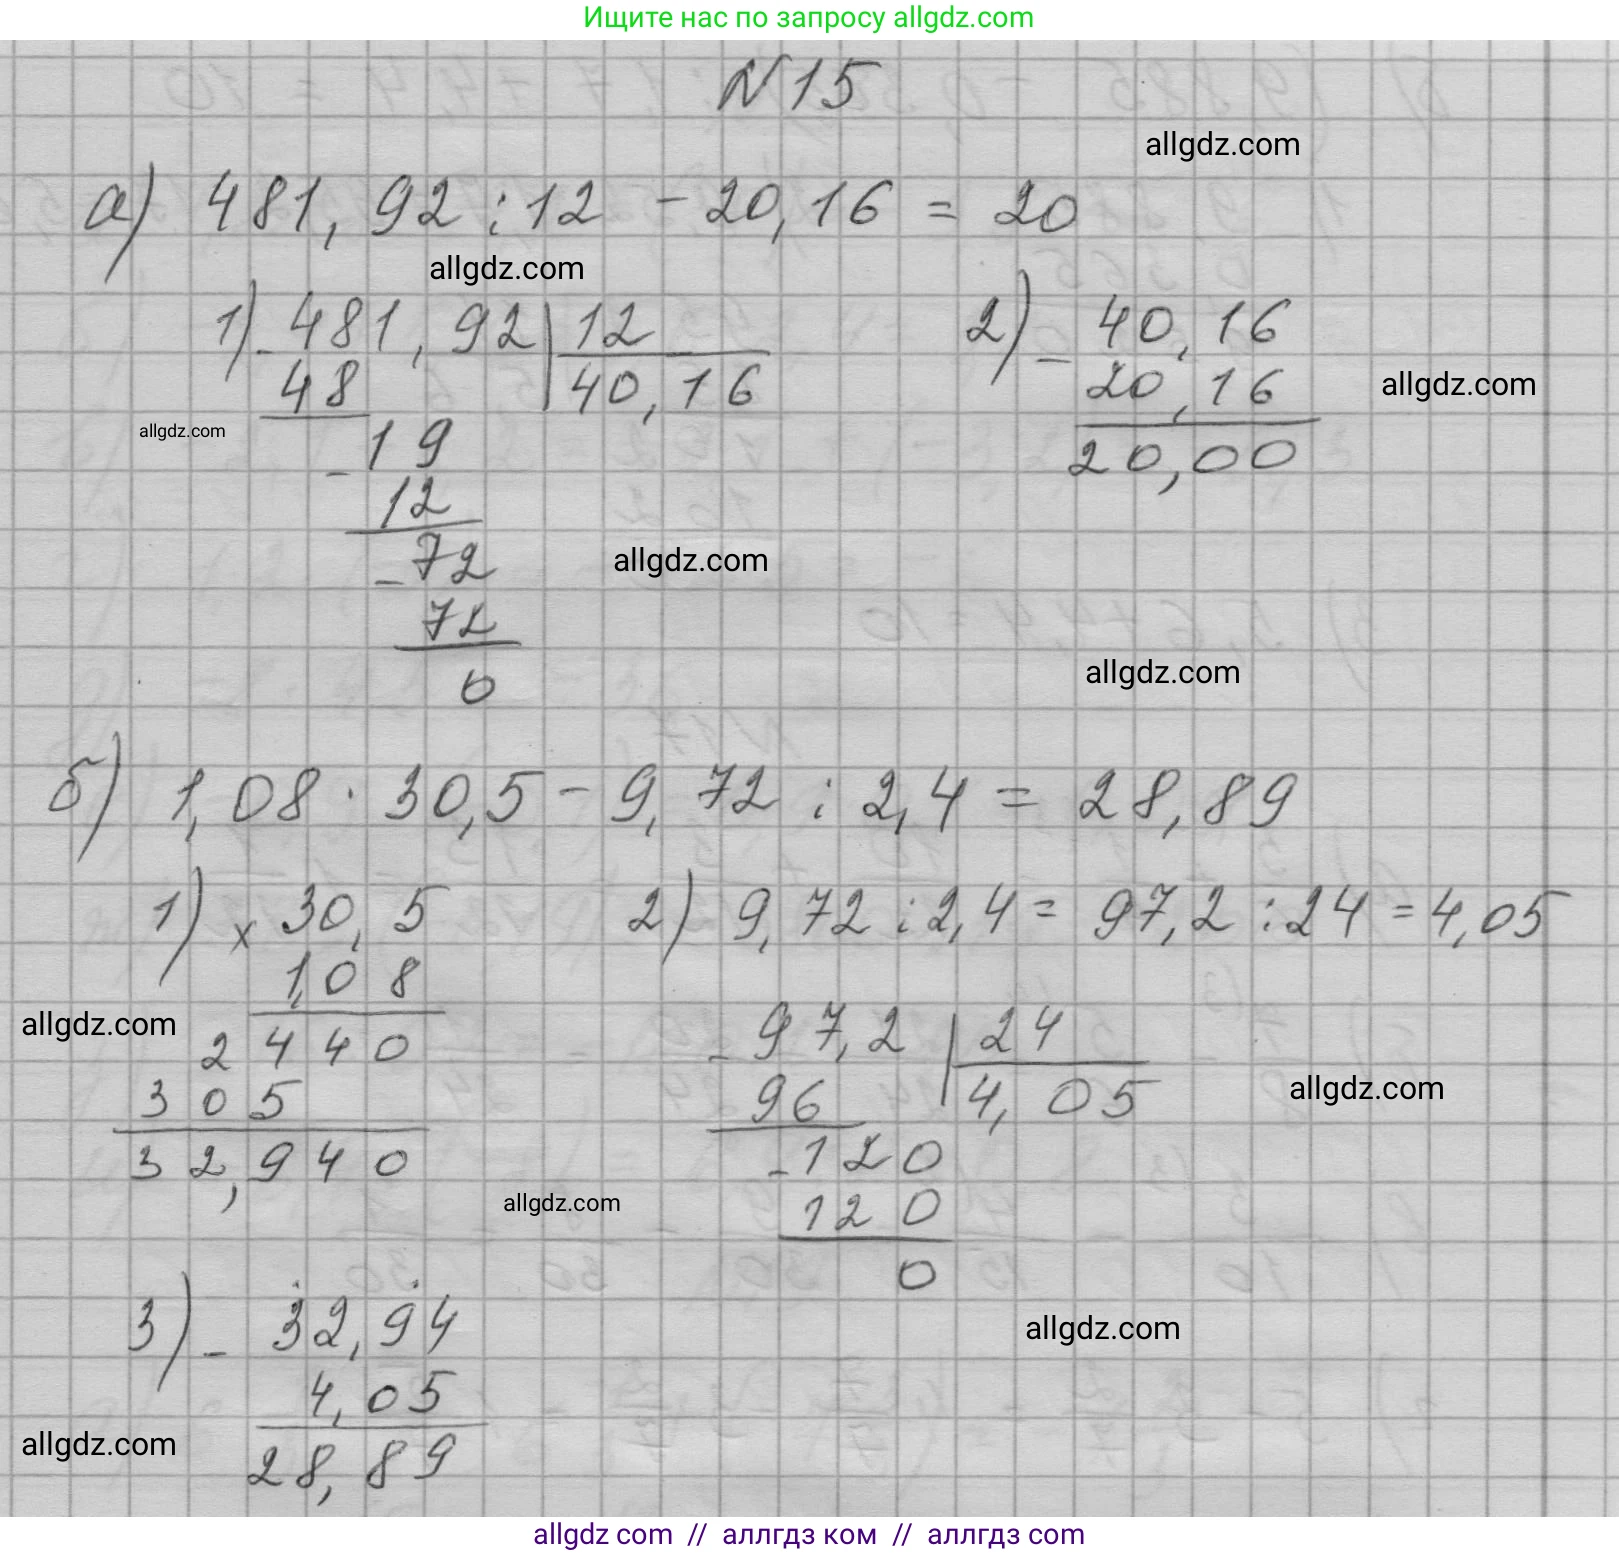 Ищите нас по запросу allgdz.com
N15
allgdz.com
а) 481,92 : 12 - 20,16 = 20
allgdz.com
1) - 481,92 | 12
48 | 40,16
allgdz.com
- 19
12
- 72
72
0
2) - 40,16
20,16
20,00
allgdz.com
allgdz.com
allgdz.com
б) 1,08 · 30,5 - 9,72 : 2,4 = 28,89
1) x 30,5
1,08
2440
305
32,940
allgdz.com
2) 9,72 : 2,4 = 97,2 : 24 = 4,05
- 97,2 | 24
96 | 4,05
- 120
120
0
allgdz.com
allgdz.com
3) - 32,94
4,05
28,89
allgdz.com
allgdz.com
allgdz com // аллгдз ком // аллгдз com